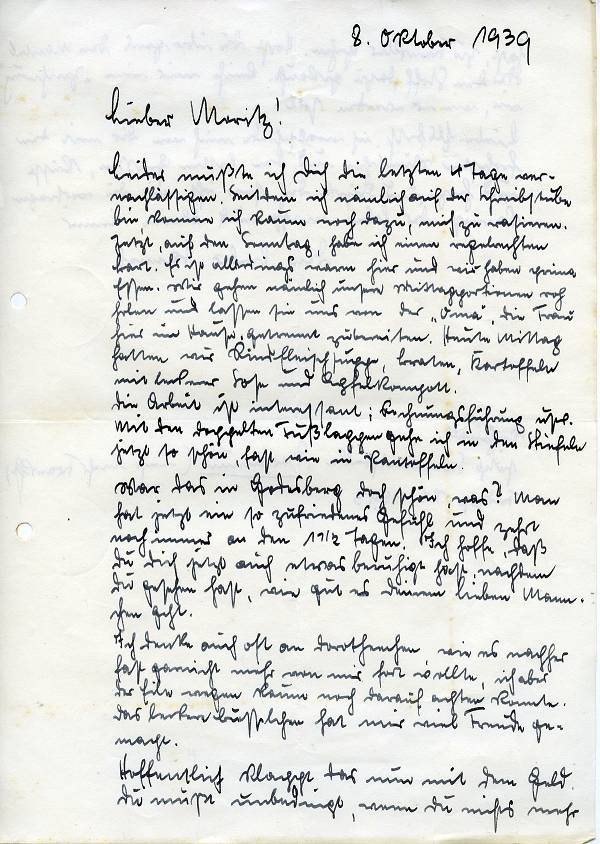 8. Oktober 1939
Lieber Moritz!
Leider mußte ich Dich die letzten 4 Tage ver-
nachlässigen. Seitdem ich nämlich auf der Schreibstube
bin, komme ich kaum noch dazu, mich zu rasieren.
Jetzt, auf den Sonntag, habe ich einen regelrechten
Bart. Es ist allerdings warm hier und wir haben prima
Essen. Wir gehen nämlich unsere Mittagsportionen roh
holen und lassen sie uns von der „Oma", die Frau
hier im Hause, getrennt zubereiten. Heute Mittag
hatten wir Rindfleischsuppe, Braten, Kartoffeln
mit leckerer Soße und Apfelkompott.
Die Arbeit ist interessant; Rechnungsführung usw.
Mit den doppelten Fußlappen gehe ich in den Stiefeln
jetzt so schön, fast wie in Pantoffeln.
War das in Godesberg doch schön was? Man
hat jetzt ein so zufriedenes Gefühl und zehrt
noch immer an den 1 1/2 Tagen. Ich hoffe, daß
Du Dich jetzt auch etwas beruhigt hast, nachdem
Du gesehen hast, wie gut es Deinem lieben Männ-
chen geht.
Ich denke auch oft an Dorotheechen, wie es nachher
fast garnicht mehr von mir fort wollte, ich aber
der Eile wegen kaum noch darauf achten konnte.
Das leckere Busselchen hat mir viel Freude ge-
macht.
Hoffentlich klappt das nun mit dem Geld.
Du mußt unbedingt, wenn Du nichts mehr